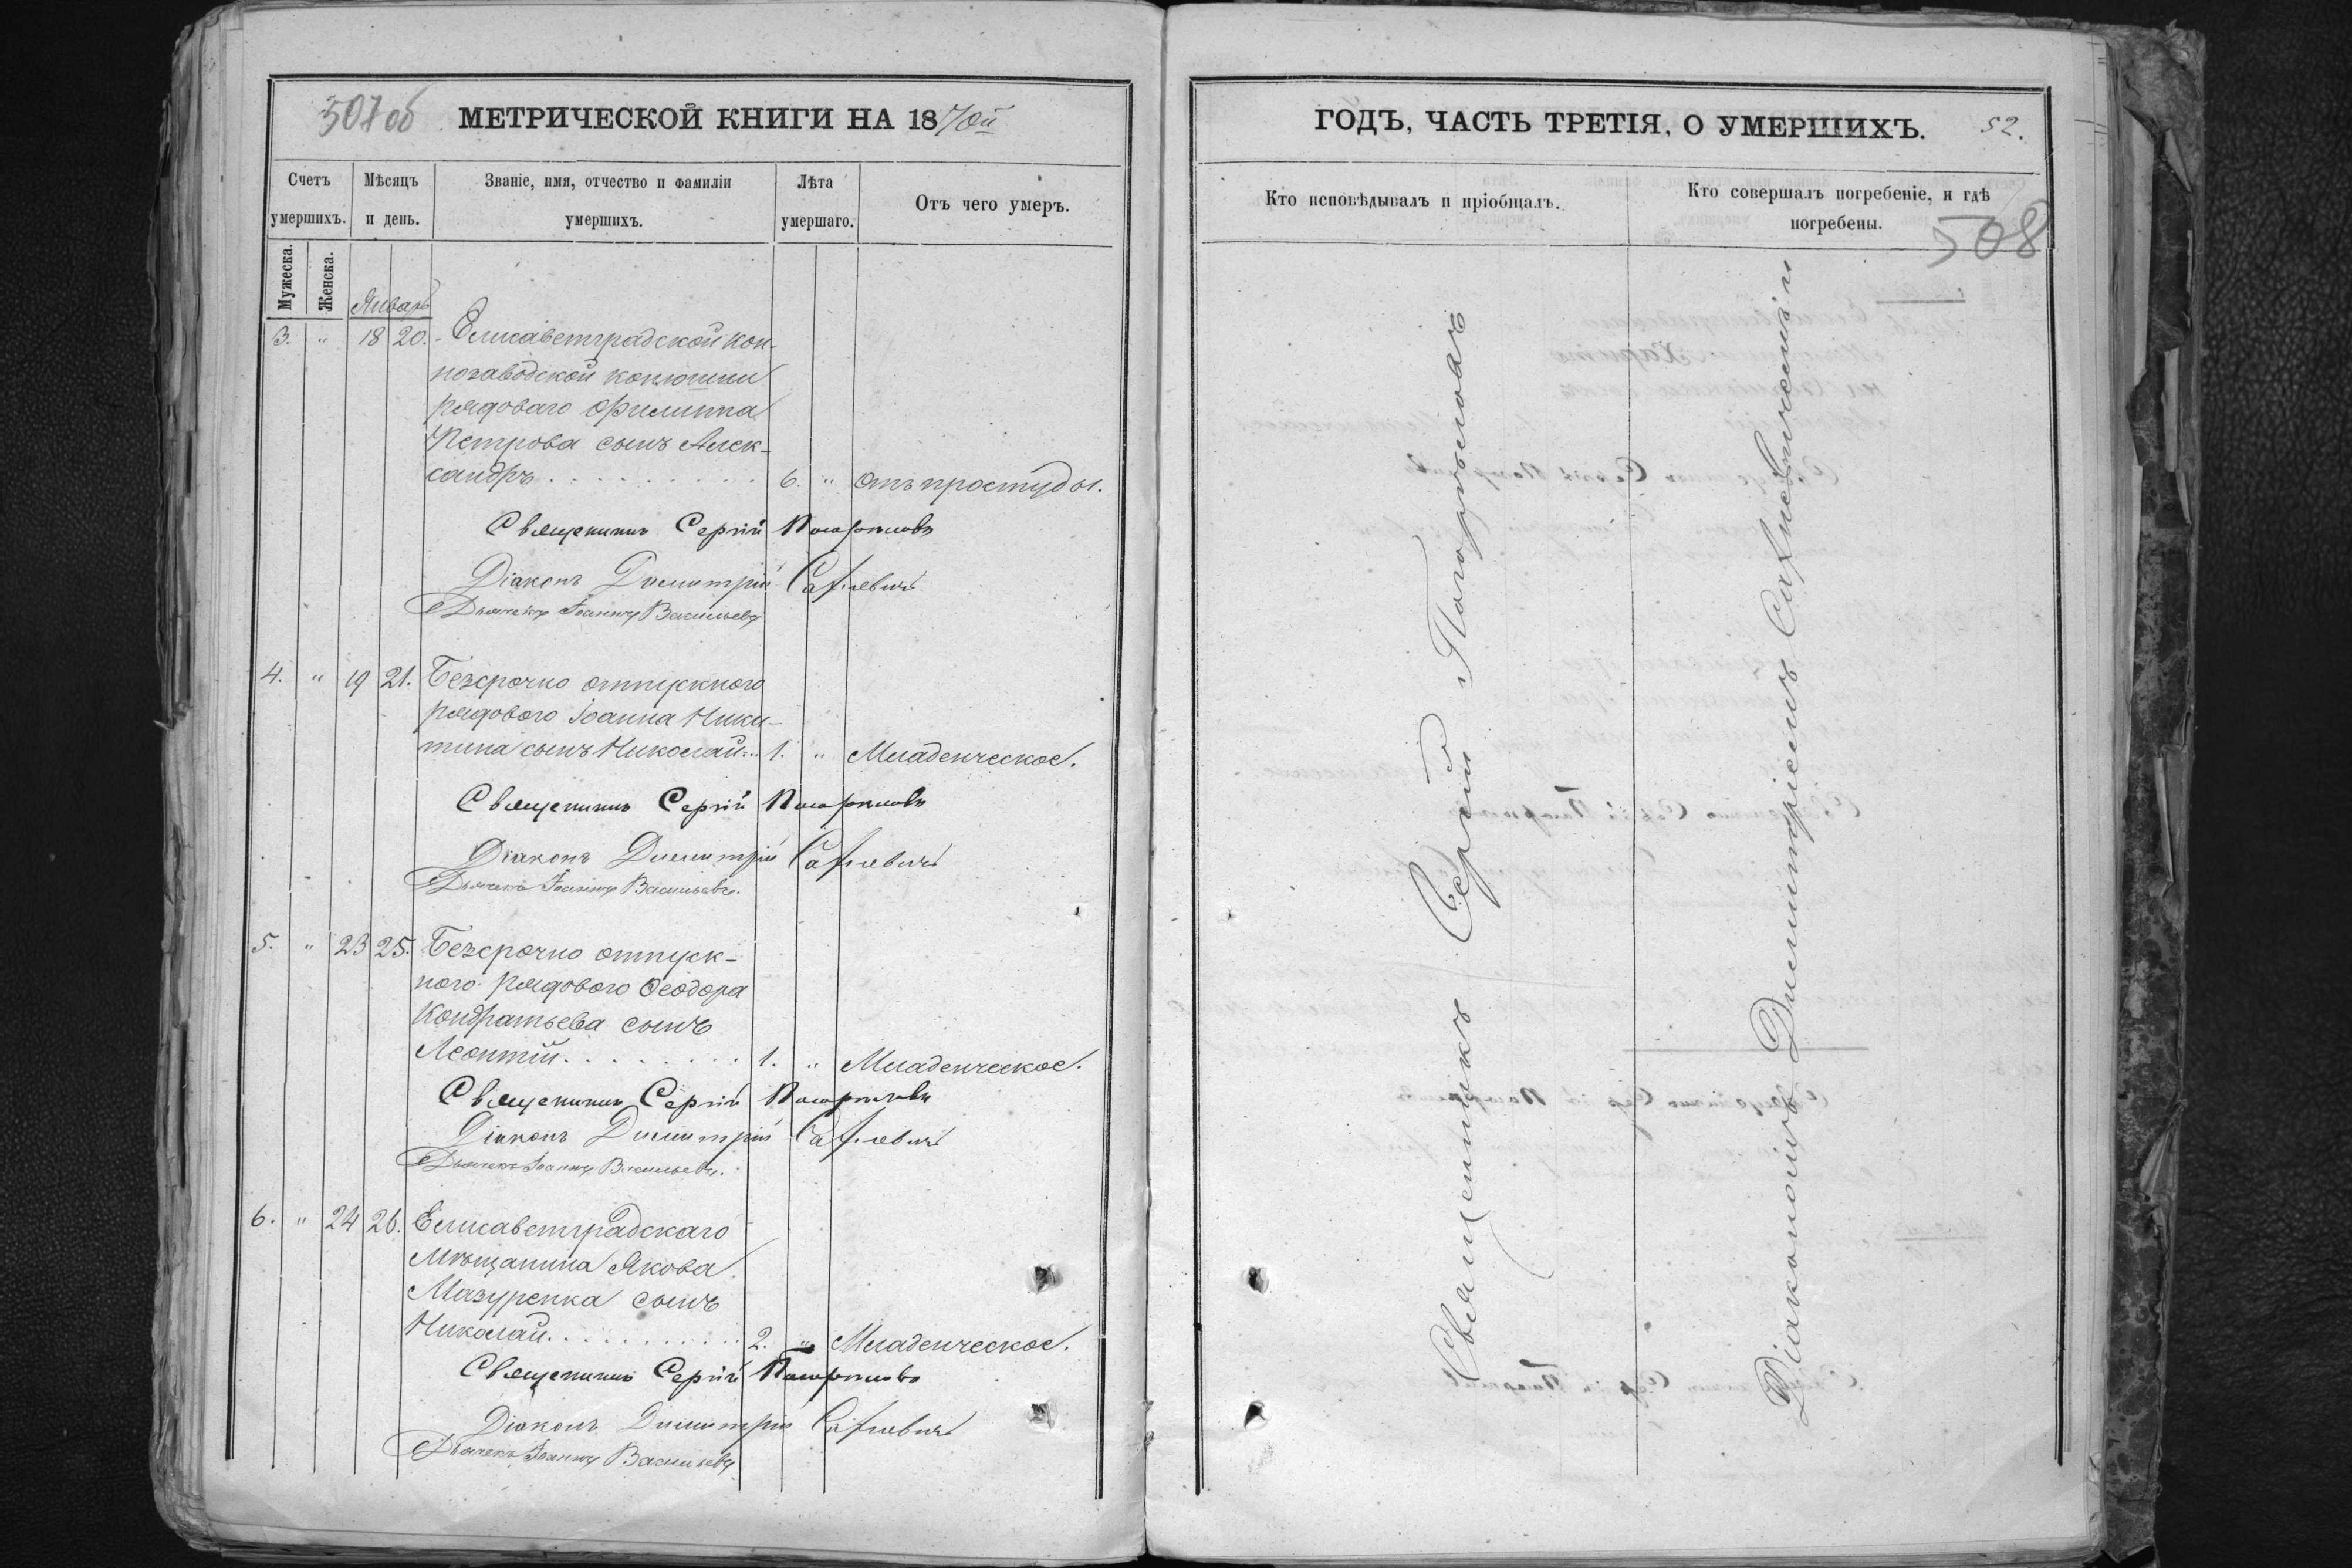 507 об
МЕТРИЧЕСКОЙ КНИГИ НА 1870й
Счетъ умершихъ.
Мѣсяцъ и день.
Званіе, имя, отчество и фамиліи умершихъ.
Лѣта умершаго.
Отъ чего умеръ.
Мужеска.
Женска.
Январь
3. " 18 20. Елисаветградской кон-
нозаводской конюшни
рядоваго Филиппа
Петрова сынъ Алек-
сандръ . . . . . . . . . . 6. " отъ простуды.
Священникъ Сергій Погорѣловъ
Діаконъ Димитрій
Дьячекъ Іоаннъ Васильевъ
4. " 19 21. Безсрочно отпускного
рядового Іоанна Ники-
тина сынъ Николай... 1. " Младенческое.
Священникъ Сергій Погорѣловъ
Діаконъ Димитрій
Дьячекъ Іоаннъ Васильевъ.
5. " 23 25. Безсрочно отпуск-
ного рядового Ѳеодора
Кондратьева сынъ
Леонтій. . . . . . . . . 1. " Младенческое.
Священникъ Сергій Погорѣловъ
Діаконъ Димитрій
Дьячекъ Іоаннъ Васильевъ.
6. " 24 26. Елисаветградскаго
Мѣщанина Якова
Мазуренка сынъ
Николай. . . . . . . . . . 2. " Младенческое.
Священникъ Сергій Погорѣловъ
Діаконъ Димитрій
Дьячекъ Іоаннъ Васильевъ
ГОДЪ, ЧАСТЬ ТРЕТІЯ, О УМЕРШИХЪ.
52.
Кто исповѣдывалъ и пріобщалъ.
Кто совершалъ погребеніе, и гдѣ
погребены.
508
Священникъ Сергій Погорѣловъ
Діакономъ Димитріемъ